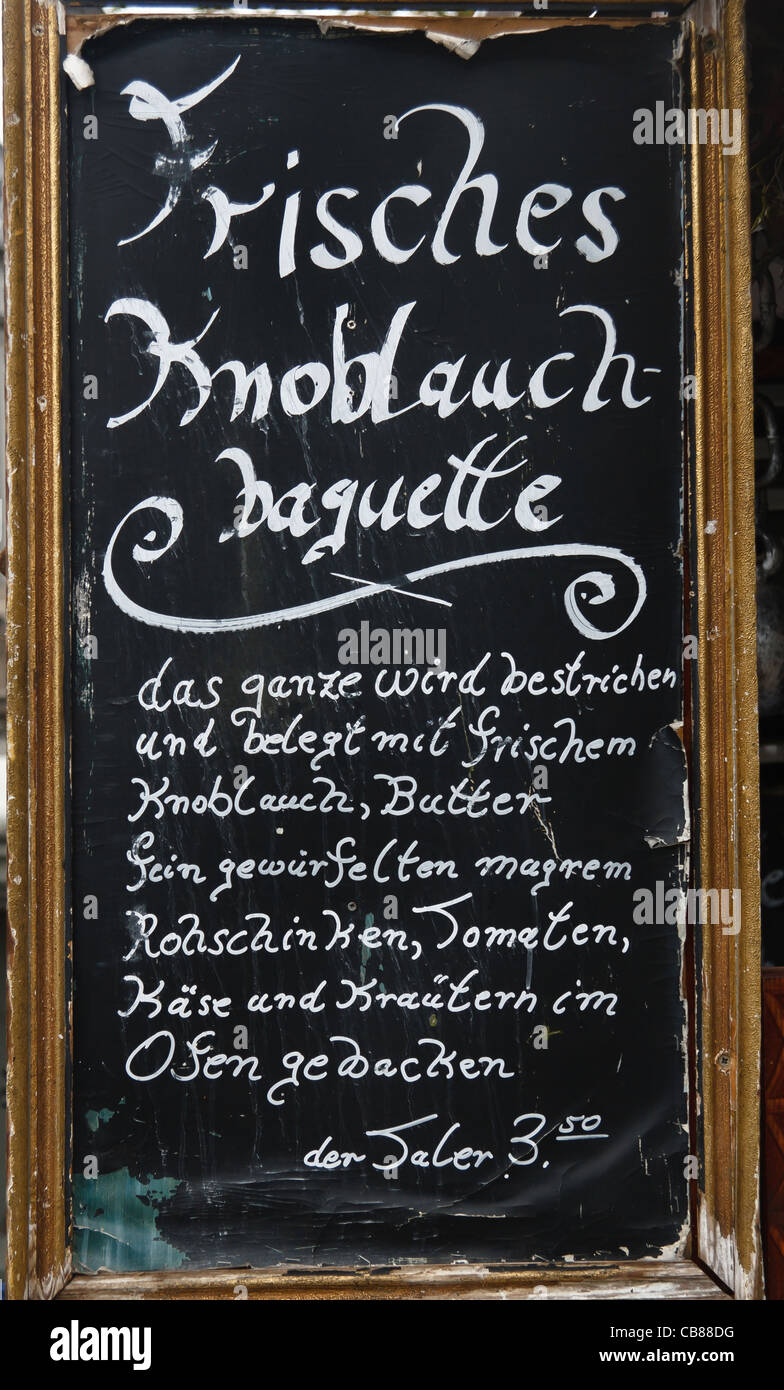 Frisches
Knoblauch-
baguette
das ganze wird bestrichen
und belegt mit frischem
Knoblauch, Butter
fein gewürfelten magrem
Rohschinken, Tomaten,
Käse und Kraütern im
Ofen gebacken
der Taler 3.50
alamy stock photo
CB88DG
www.alamy.com